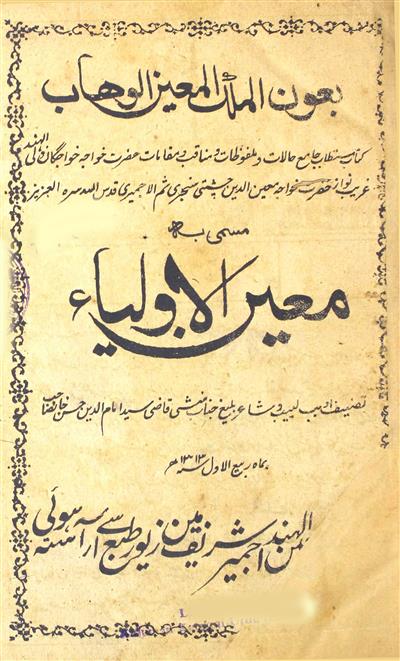 بعون الملک المعین الوهاب
کتاب مستطاب جامع حالات و ملفوظات و مناقب و مقامات حضرت خواجہ خواجگان والی الہند
غریب نواز حضرت خواجہ معین الدین چشتی سنجری ثم الاجمیری قدس اللہ سرہ العزیز
مسمی بہ
معین الاولیاء
تصنیف ادیب لبیب و شاعر بلیغ جناب منشی قاضی سید امام الدین حسن خانصاحب
بماہ ربیع الاول سنہ ۱۳۱۲ھ
من الہند اجمیر شریف مین زیور طبع سے آراستہ ہوئی